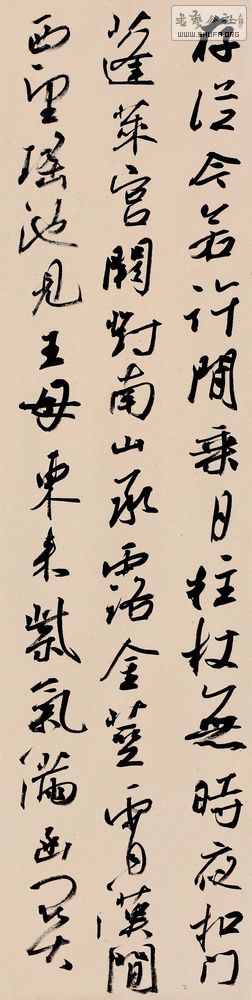 书艺公社
WWW.SHUFA.ORG
存從今若許間乘月拄杖無時夜扣門
蓬萊宮闕對南山承露金莖霄漢間
西望瑤池見王母東來紫氣滿函關